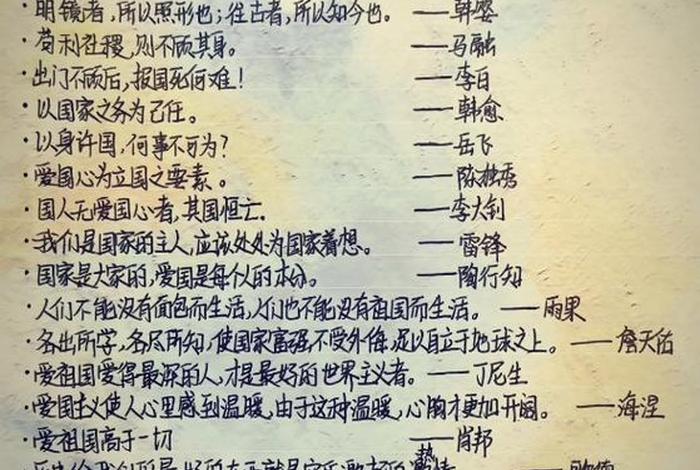 ·明镜者,所以照形也;往古者,所以知今也。——韩婴
·苟利社稷,则不顾其身。——马融
·出门不顾后,报国死何难!——李白
·以国家之务为己任。——韩愈
·以身许国,何事不可为?——岳飞
·爱国心为立国之要素。——陈独秀
·国人无爱国心者,其国恒亡。——李大钊
·我们是国家的主人,应该处处为国家着想。——雷锋
·国家是大家的,爱国是每个人的本分。——陶行知
·人们不能没有面包而生活,人们也不能没有祖国而生活。——雨果
·各出所学,各尽所知,使国家富强不受外侮,足以自立于地球之上。——詹天佑
·爱祖国爱得最深的人,才是最好的世界主义者。——丁尼生
·爱国主义使人心里感到温暖,由于这种温暖,心胸才更加开阔。——海涅
·爱祖国高于一切——肖邦